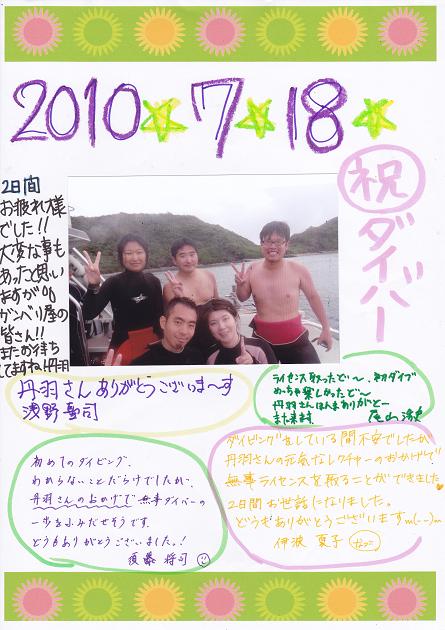 2010☆7☆18☆
祝
ダイバー
2日間
お疲れ様
でした!!
大変な事も
あったと思い
ますが
ガンバリ屋の
皆さん!!
またお待ち
してますね 丹羽
丹羽さんありがとうございま〜す
浅野
ライセンス取ったど〜、初ダイブ
めっちゃ楽しかったど〜
丹羽さんほんまありがとー
また来ます
尾山
初めてのダイビング、
わからないことだらけでしたが、
丹羽さんのおかげで無事ダイバーの
一歩をふみだせそうです。
どうもありがとうございました。!
須藤 将司
ダイビングをしている間不安でしたが、
丹羽さんの元気なレクチャーのおかげで
無事ライセンスを取ることができました
2日間お世話になりました。
どうもありがとうございますm(_ _)m
伊波 夏子